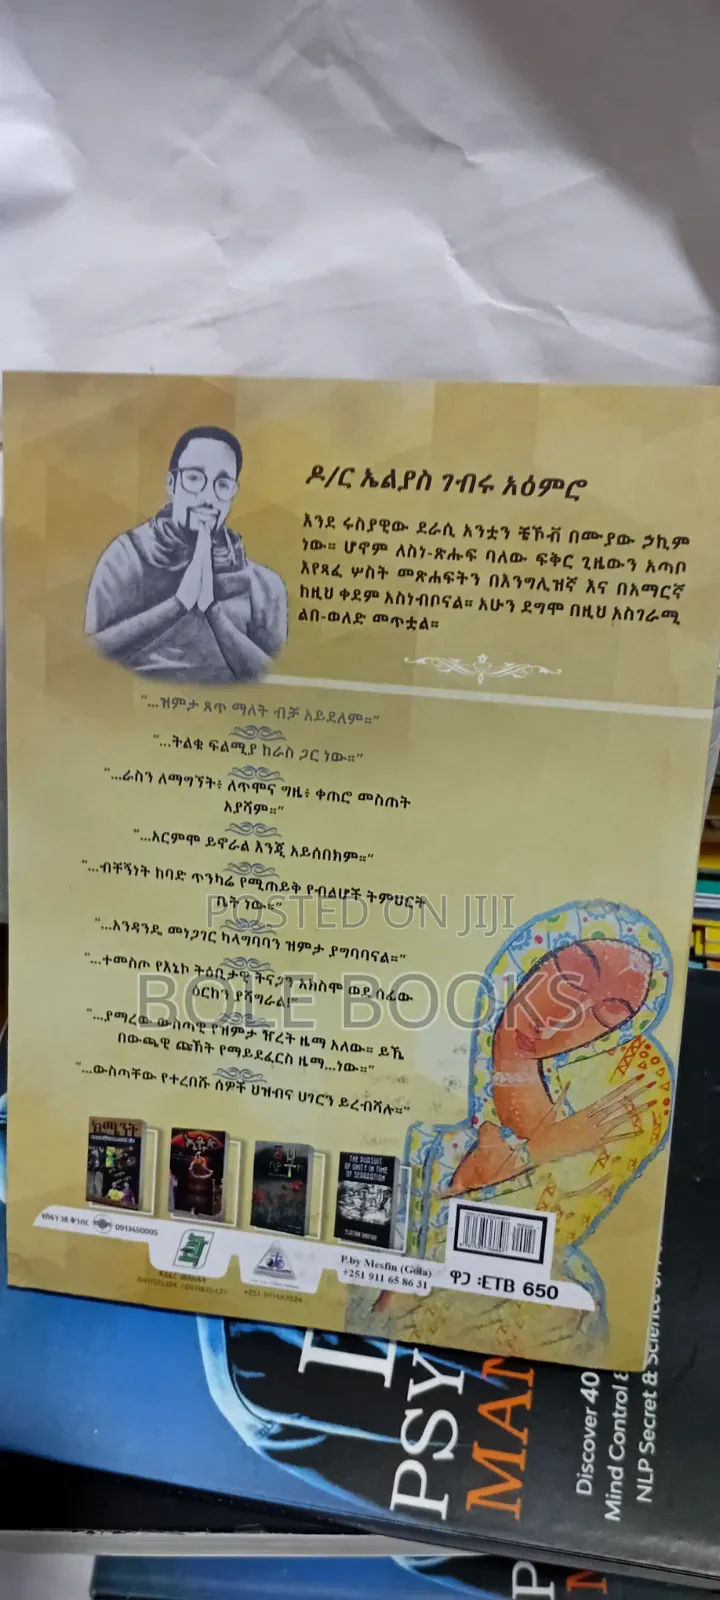 ዶ/ር ኤልያስ ገብሩ አዕምሮ
እንደ ሩስያዊው ደራሲ አንቷን ቼኾቭ በሙያው ኃኪም
ነው። ሆኖም ለስነ-ጽሑፍ ባለው ፍቅር ጊዜውን አጣቦ
እየጻፈ ሦስት መጽሐፍትን በእንግሊዝኛ እና በአማርኛ
ከዚህ ቀደም አስነብቦናል። አሁን ደግሞ በዚህ አስገራሚ
ልበ-ወለድ መጥቷል።
"...ዝምታ ጸጥ ማለት ብቻ አይደለም።"
"...ትልቁ ፍልሚያ ከራስ ጋር ነው።"
"...ራስን ለማግኘት፥ ለጥሞና ግዜ፥ ቀጠሮ መስጠት
አያሻም።"
"...አርምሞ ይኖራል እንጂ አይሰበክም።"
"...ብቸኝነት ከባድ ጥንካሬ የሚጠይቅ የብልሆች ትምህርት
ቤት ነው።"
POSTED ON JIJI
"...አንዳንዴ መነጋገር ካላግባባን ዝምታ ያግባባናል።"
"...ተመስጦ የእኔኮ ትዕቢታዊ ትናጋን አክስሞ ወደ ሰፊው
ዕርከን ያሻግራል!"
BOLE BOOKS
"...ያማረው ውስጣዊ የዝምታ ዥረት ዜማ አለው። ይኼ
በውጫዊ ጩኸት የማይደፈርስ ዜማ...ነው።"
"...ውስጣቸው የተረበሹ ሰዎች ህዝብና ሀገርን ይረብሻሉ።"
ክሚንት
THE PURSUIT
OF UNITY IN TIME
OF SEPARATION
0913450005
P.by Mesfin (Gofa)
+251 911 65 86 31
ዋጋ ፡ETB 650
+251 911447024
PSY
MAN
Discover 40
Mind Control &
NLP Secret & Science of
P
M